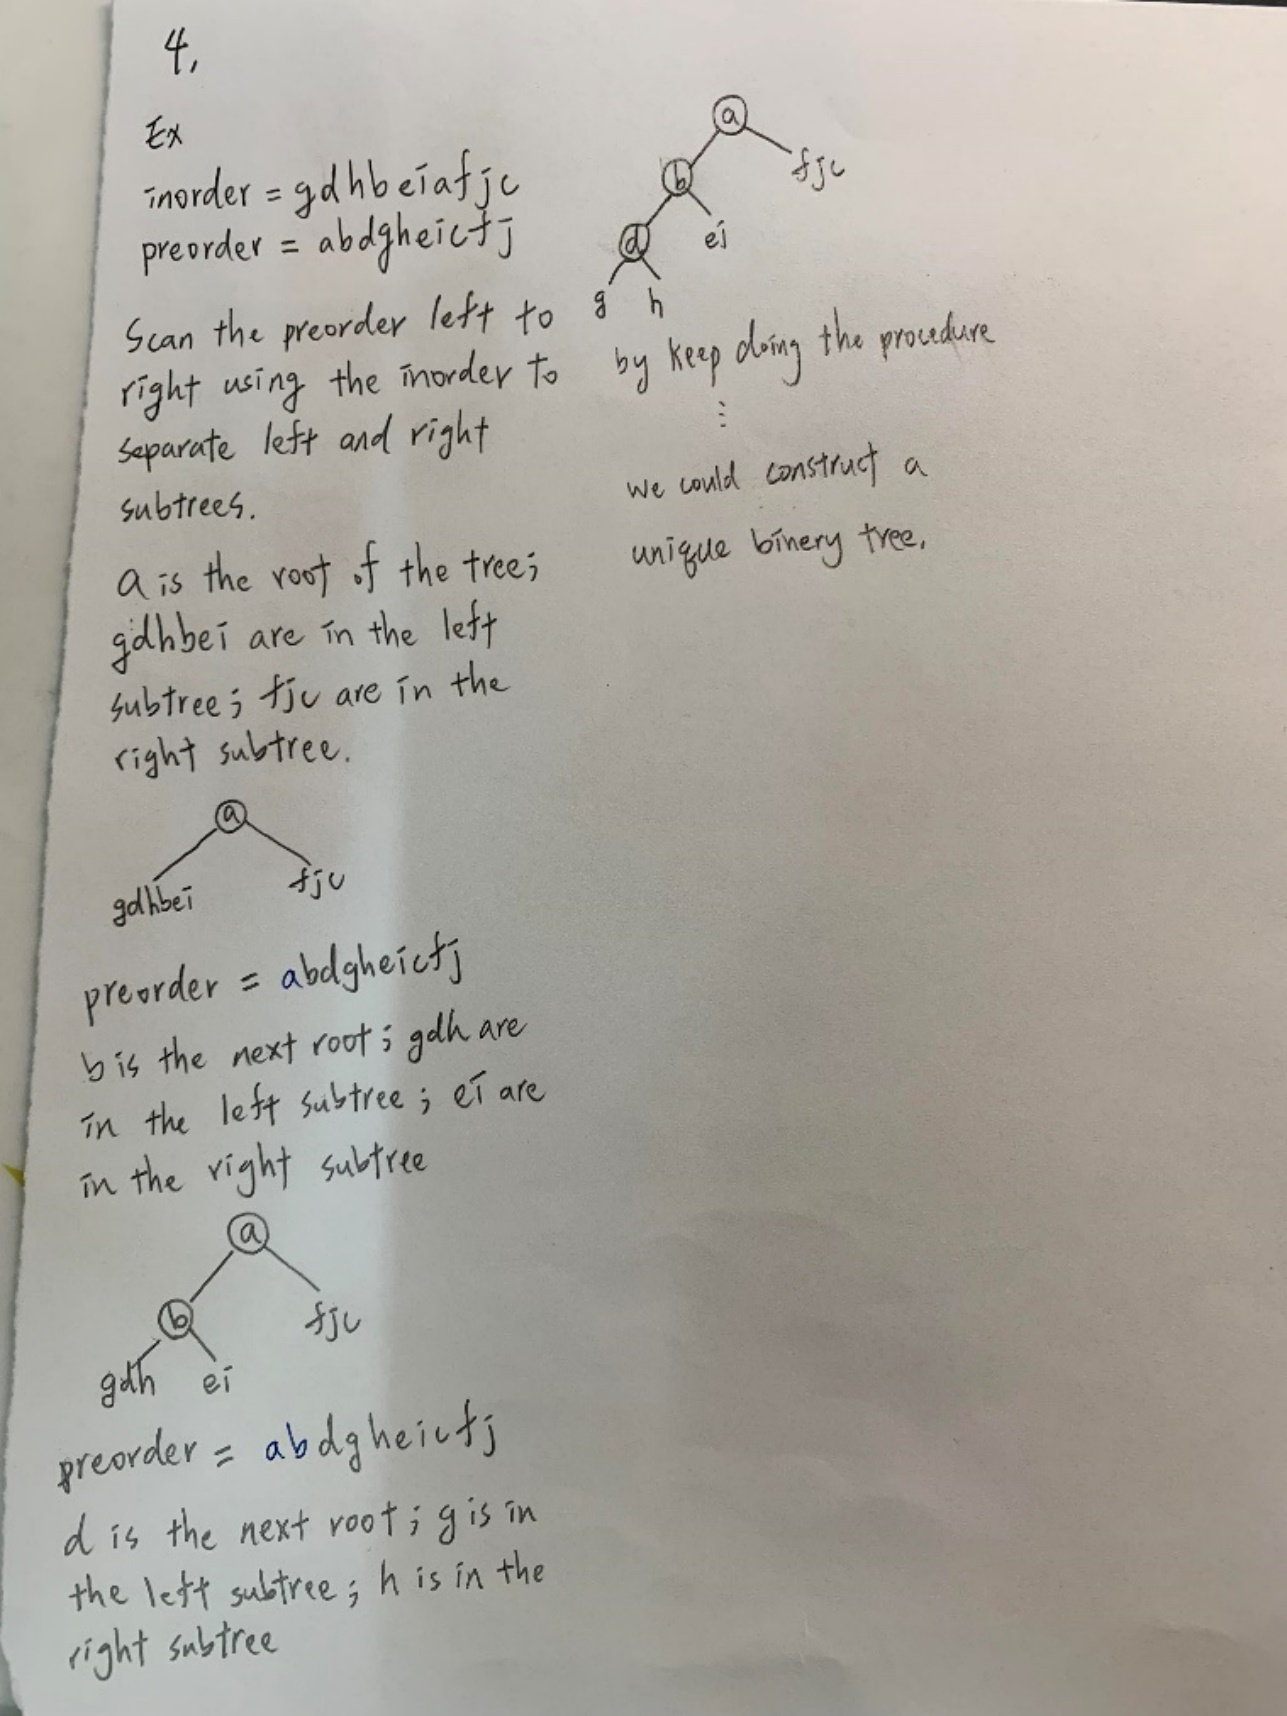 4.
Ex
inorder = gdhbeiafjc
preorder = abdgheicfj
Scan the preorder left to
right using the inorder to
separate left and right
subtrees.
a is the root of the tree;
gdhbei are in the left
subtree; fjc are in the
right subtree.
a
gdhbei fjc
preorder = abdgheicfj
b is the next root; gdh are
in the left subtree; ei are
in the right subtree
a
b fjc
gdh ei
preorder = abdgheicfj
d is the next root; g is in
the left subtree; h is in the
right subtree
a
b fjc
d ei
g h
by keep doing the procedure
⋮
we could construct a
unique binery tree.